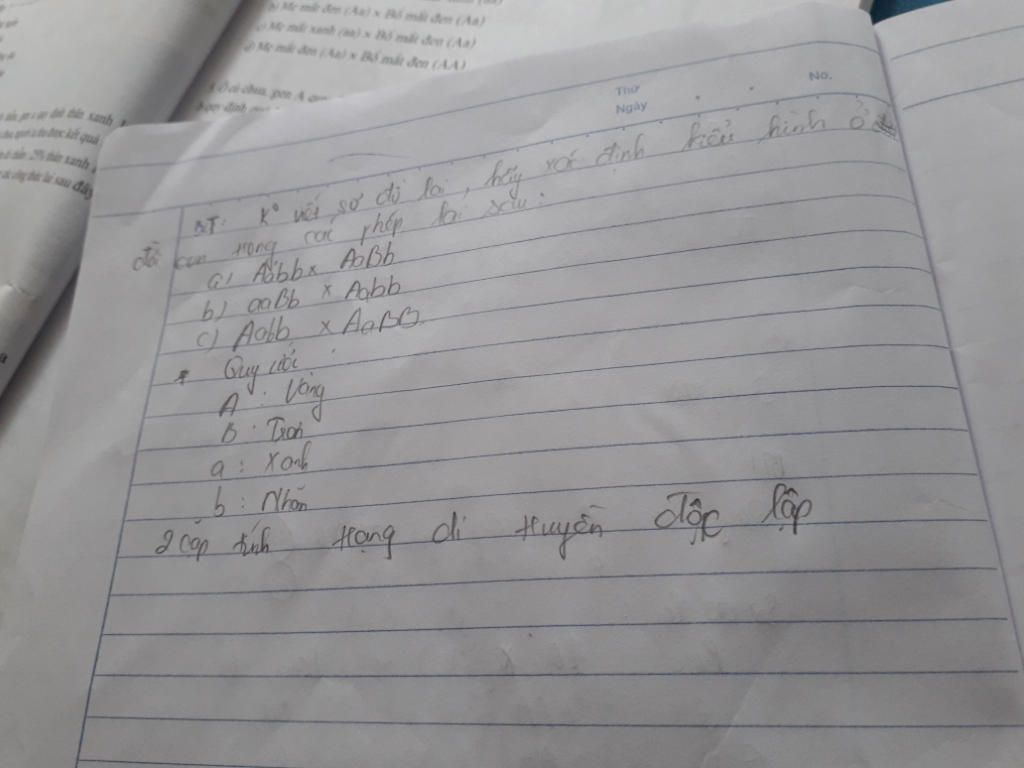 b) Mẹ mắt đen (Aa) x Bố mắt đen (Aa)
c) Mẹ mắt xanh (aa) x Bố mắt đen (Aa)
d) Mẹ mắt đen (Aa) x Bố mắt đen (AA)
5. Ở cà chua, gen A
Thứ
Ngày
No.
BT: K° viết sơ đồ lai, hãy xác định kiểu hình ở
đời con trong các phép lai sau:
a) Aabb x AaBb
b) aaBb x Aabb
c) Aabb x AaBB
* Quy ước:
A: Vàng
B: Trơn
a: Xanh
b: Nhăn
2 cặp tính trạng di truyền độc lập